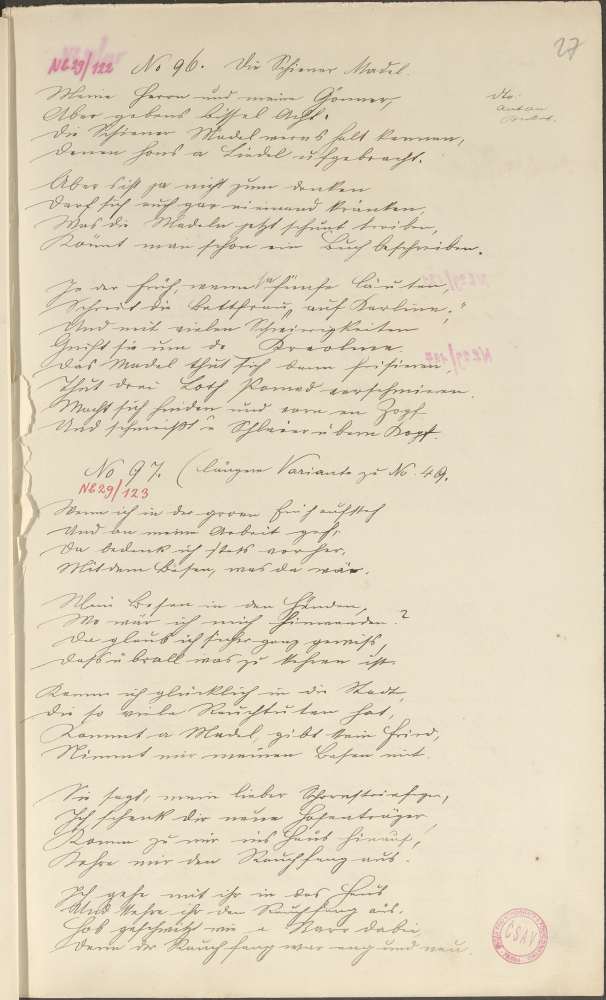 27
NE29/122 No 96. Die Schiener Madel.
Meine Herrn und meine Gönner,
Aber gebens bissel Acht.
Die Schiener Madel werns halt kennen,
Denen hons a Liedel ufgebracht.
dto.
Anton
Aber s'ist ja nicht zum denken
Darf sich auch gar niemand kränken,
Was die Madeln jetzt schunt treiben,
Könnt man schon ein Buch beschreiben.
In der Früh, wenns fünfe läuten,
Schreit die Bettfrau, auf Karline,"
Und mit vielen Schwierigkeiten
Greift sie um de Krinoline.
Das Madel thut sich dann frisieren,
Thut drei Loth Pomad verschmieren.
Macht sich hinden und vorn en Zopf
Und schmeißt n Schleier übern Kopf.
No 97. (längere Variante zu No. 49.
NE29/123
Wenn ich in der grauen Früh aufsteh
Und an meine Arbeit geh,
Da bedenk ich stets vorher,
Mit dem Besen, was da wär.
Mein Besen in den Händen,
Wo wär ich mich hinwenden?
Da glaub ich sicher ganz gewiß,
Dass überall was zu kehren ist.
Komm ich glücklich in die Stadt,
Die so viele Rauchtuten hat,
Kommt a Madel, gibt kein Fried,
Nimmt mir meinen Besen mit.
Sie sagt, mein lieber Schornsteinfeger,
Ich schenk dir neue Hosenträger,
Komm zu mir ins Haus hinauf,
Kehre mir den Rauchfang aus.
Ich gehe mit ihr in das Haus
Und kehre ihr den Rauchfang aus.
Hob geschwitzt wie a Narr dabei,
Denn der Rauchfang war eng und neu.
ČSAV